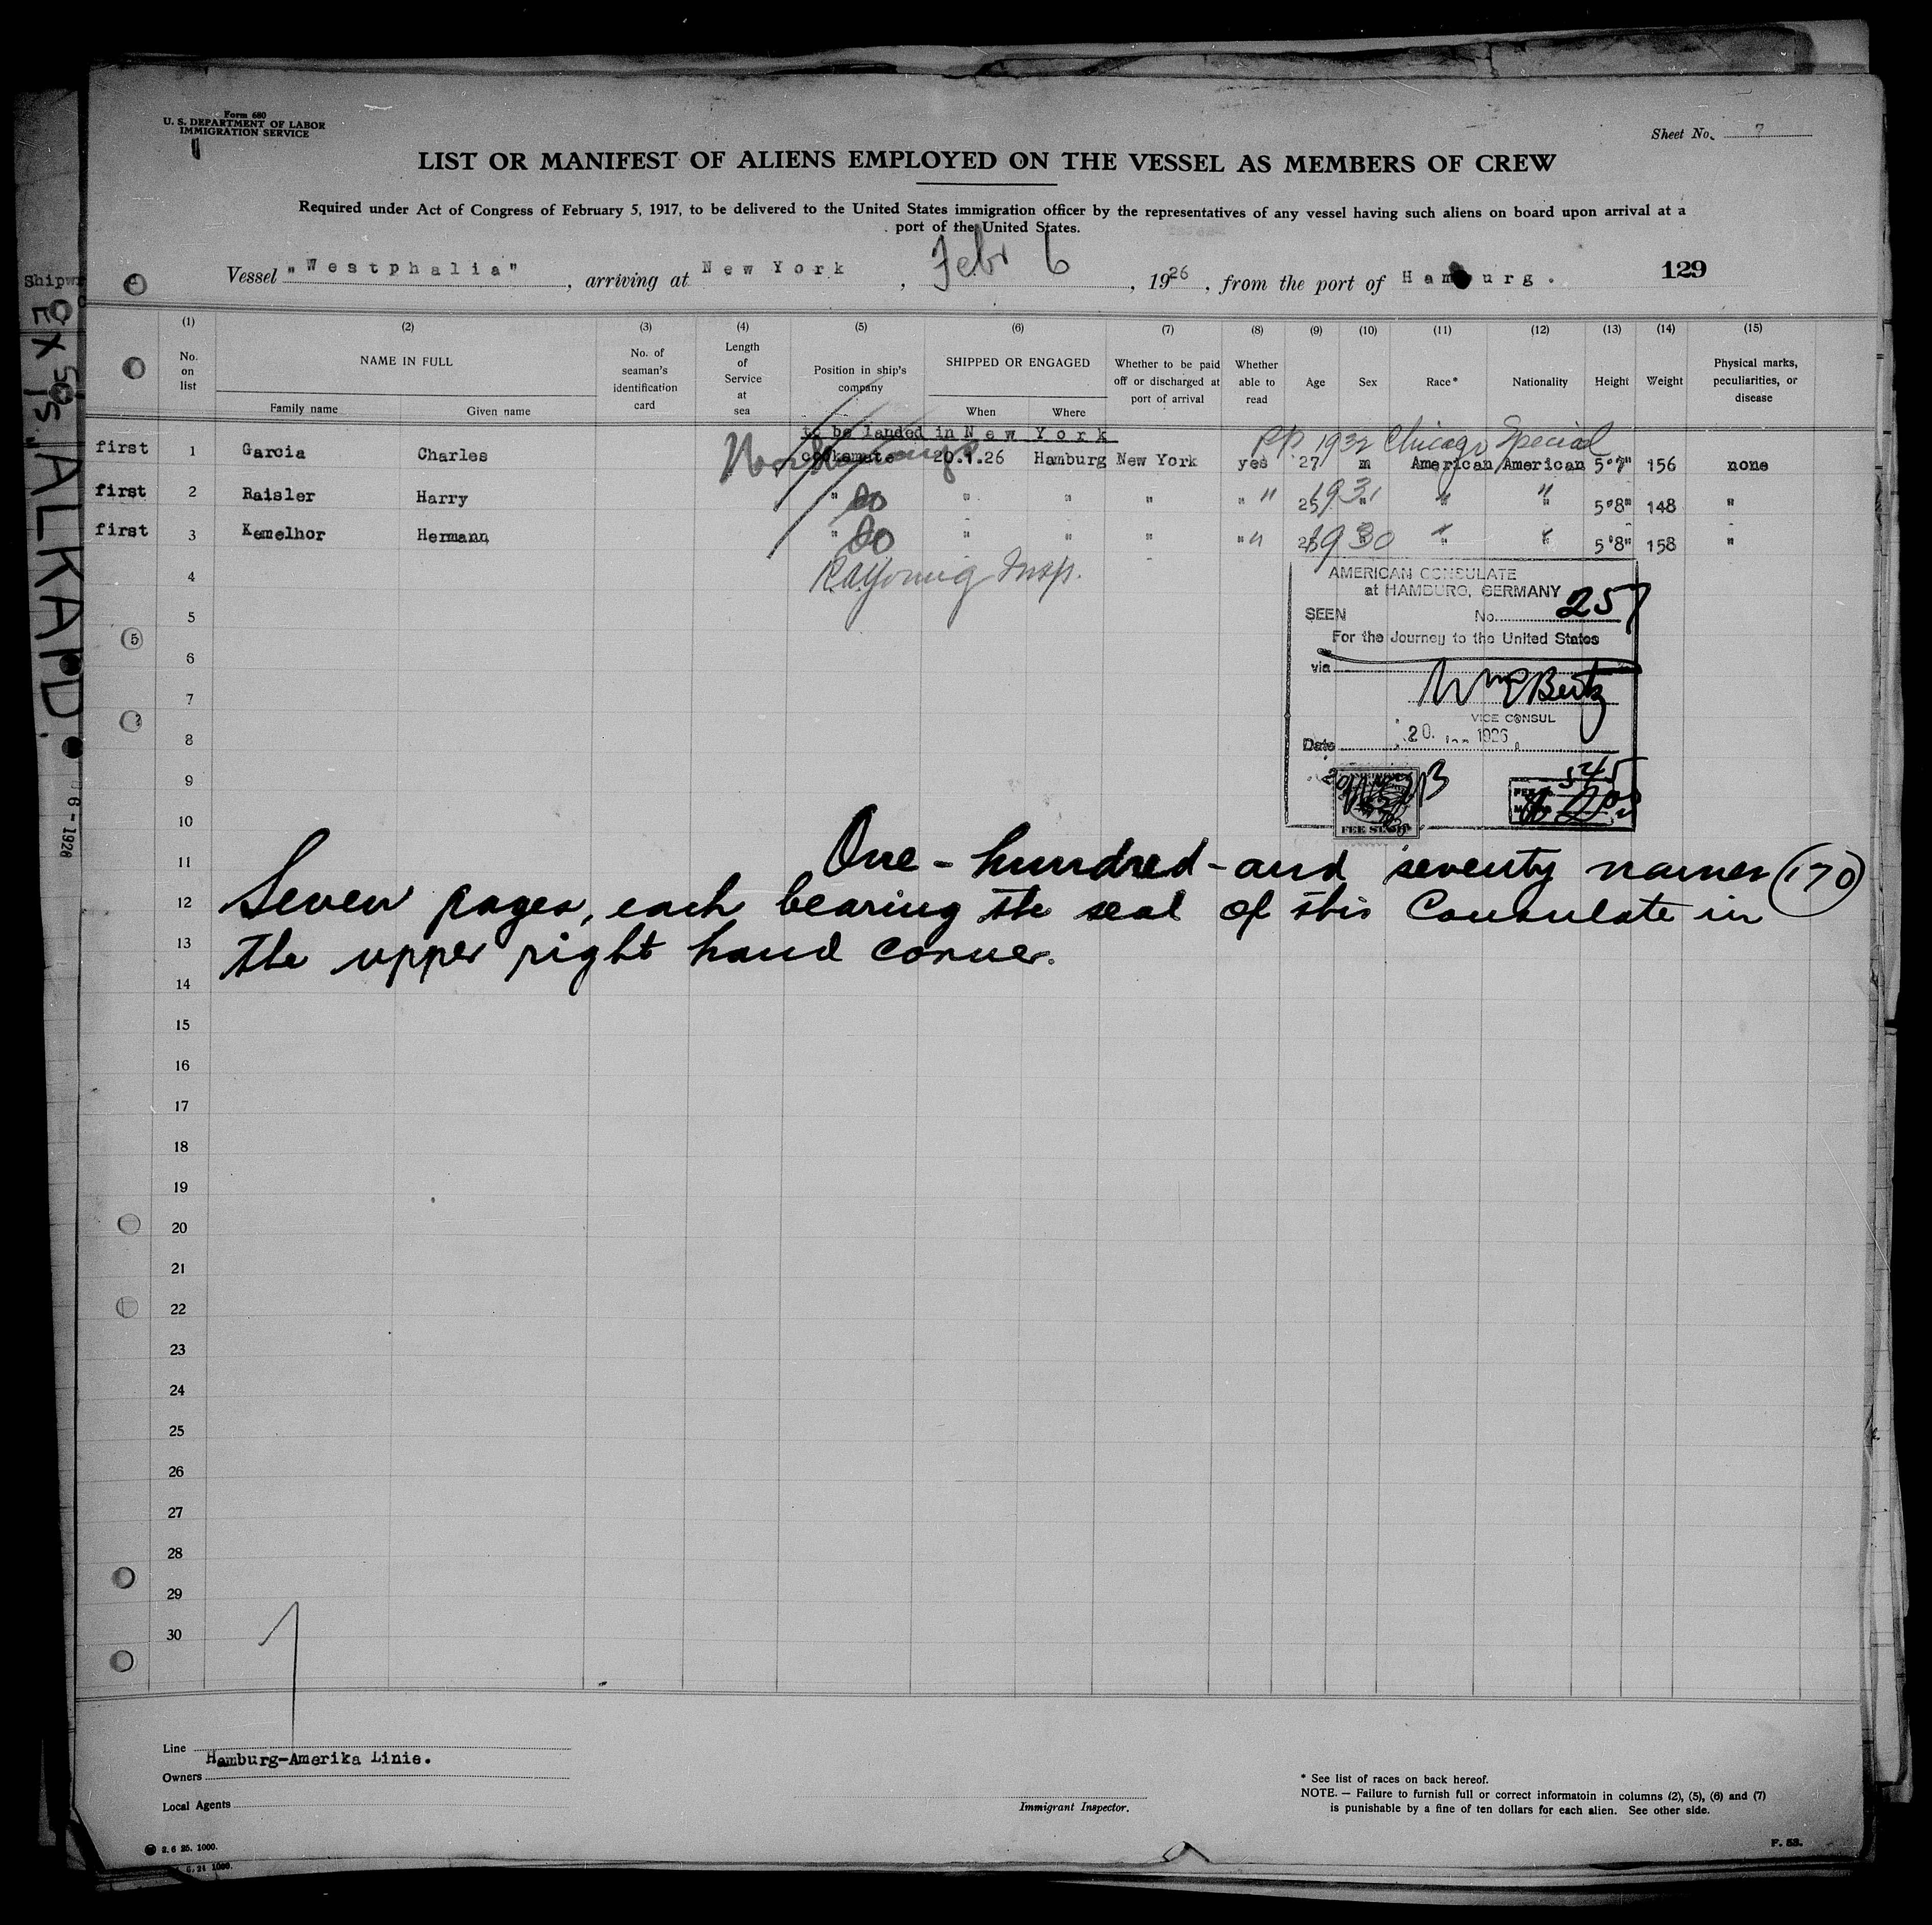 Form 680
U. S. DEPARTMENT OF LABOR
IMMIGRATION SERVICE
Sheet No. 7
LIST OR MANIFEST OF ALIENS EMPLOYED ON THE VESSEL AS MEMBERS OF CREW
Required under Act of Congress of February 5, 1917, to be delivered to the United States immigration officer by the representatives of any vessel having such aliens on board upon arrival at a
port of the United States.
Vessel "Westphalia", arriving at New York, Febr 6, 1926, from the port of Hamburg.
129
(1) (2) (3) (4) (5) (6) (7) (8) (9) (10) (11) (12) (13) (14) (15)
No. on list
NAME IN FULL
Family name
Given name
No. of seaman's identification card
Length of Service at sea
Position in ship's company
SHIPPED OR ENGAGED
When
Where
Whether to be paid off or discharged at port of arrival
Whether able to read
Age
Sex
Race*
Nationality
Height
Weight
Physical marks, peculiarities, or disease
to be landed in New York
PP. 1932 Chicago Special
first 1 Garcia Charles cooksmate 20.1.26 Hamburg New York yes 27 m American American 5'7" 156 none
first 2 Raisler Harry " do " " " " " 25 1931 " " " 5'8" 148 "
first 3 Kemelhor Hermann " do " " " " " 1930 " " " 5'8" 158 "
4
Insp.
AMERICAN CONSULATE
at HAMBURG, GERMANY
5
SEEN No. 257
For the Journey to the United States
6
via
7
VICE CONSUL
8
Date 20. Jan 1926
9
545
FEE STAMP
10
11
One-hundred-and seventy names (170)
12
Seven pages, each bearing the seal of this Consulate in
13
the upper right hand corner.
14
15
16
17
18
19
20
21
22
23
24
25
26
27
28
29
30
Line
Hamburg-Amerika Linie.
Owners
Local Agents
Immigrant Inspector.
* See list of races on back hereof.
NOTE. — Failure to furnish full or correct informatoin in columns (2), (5), (6) and (7)
is punishable by a fine of ten dollars for each alien. See other side.
2. 6 25. 1000.
6. 21 1000.
F. 53.
Shipw
ALKAPD.
6 - 1926